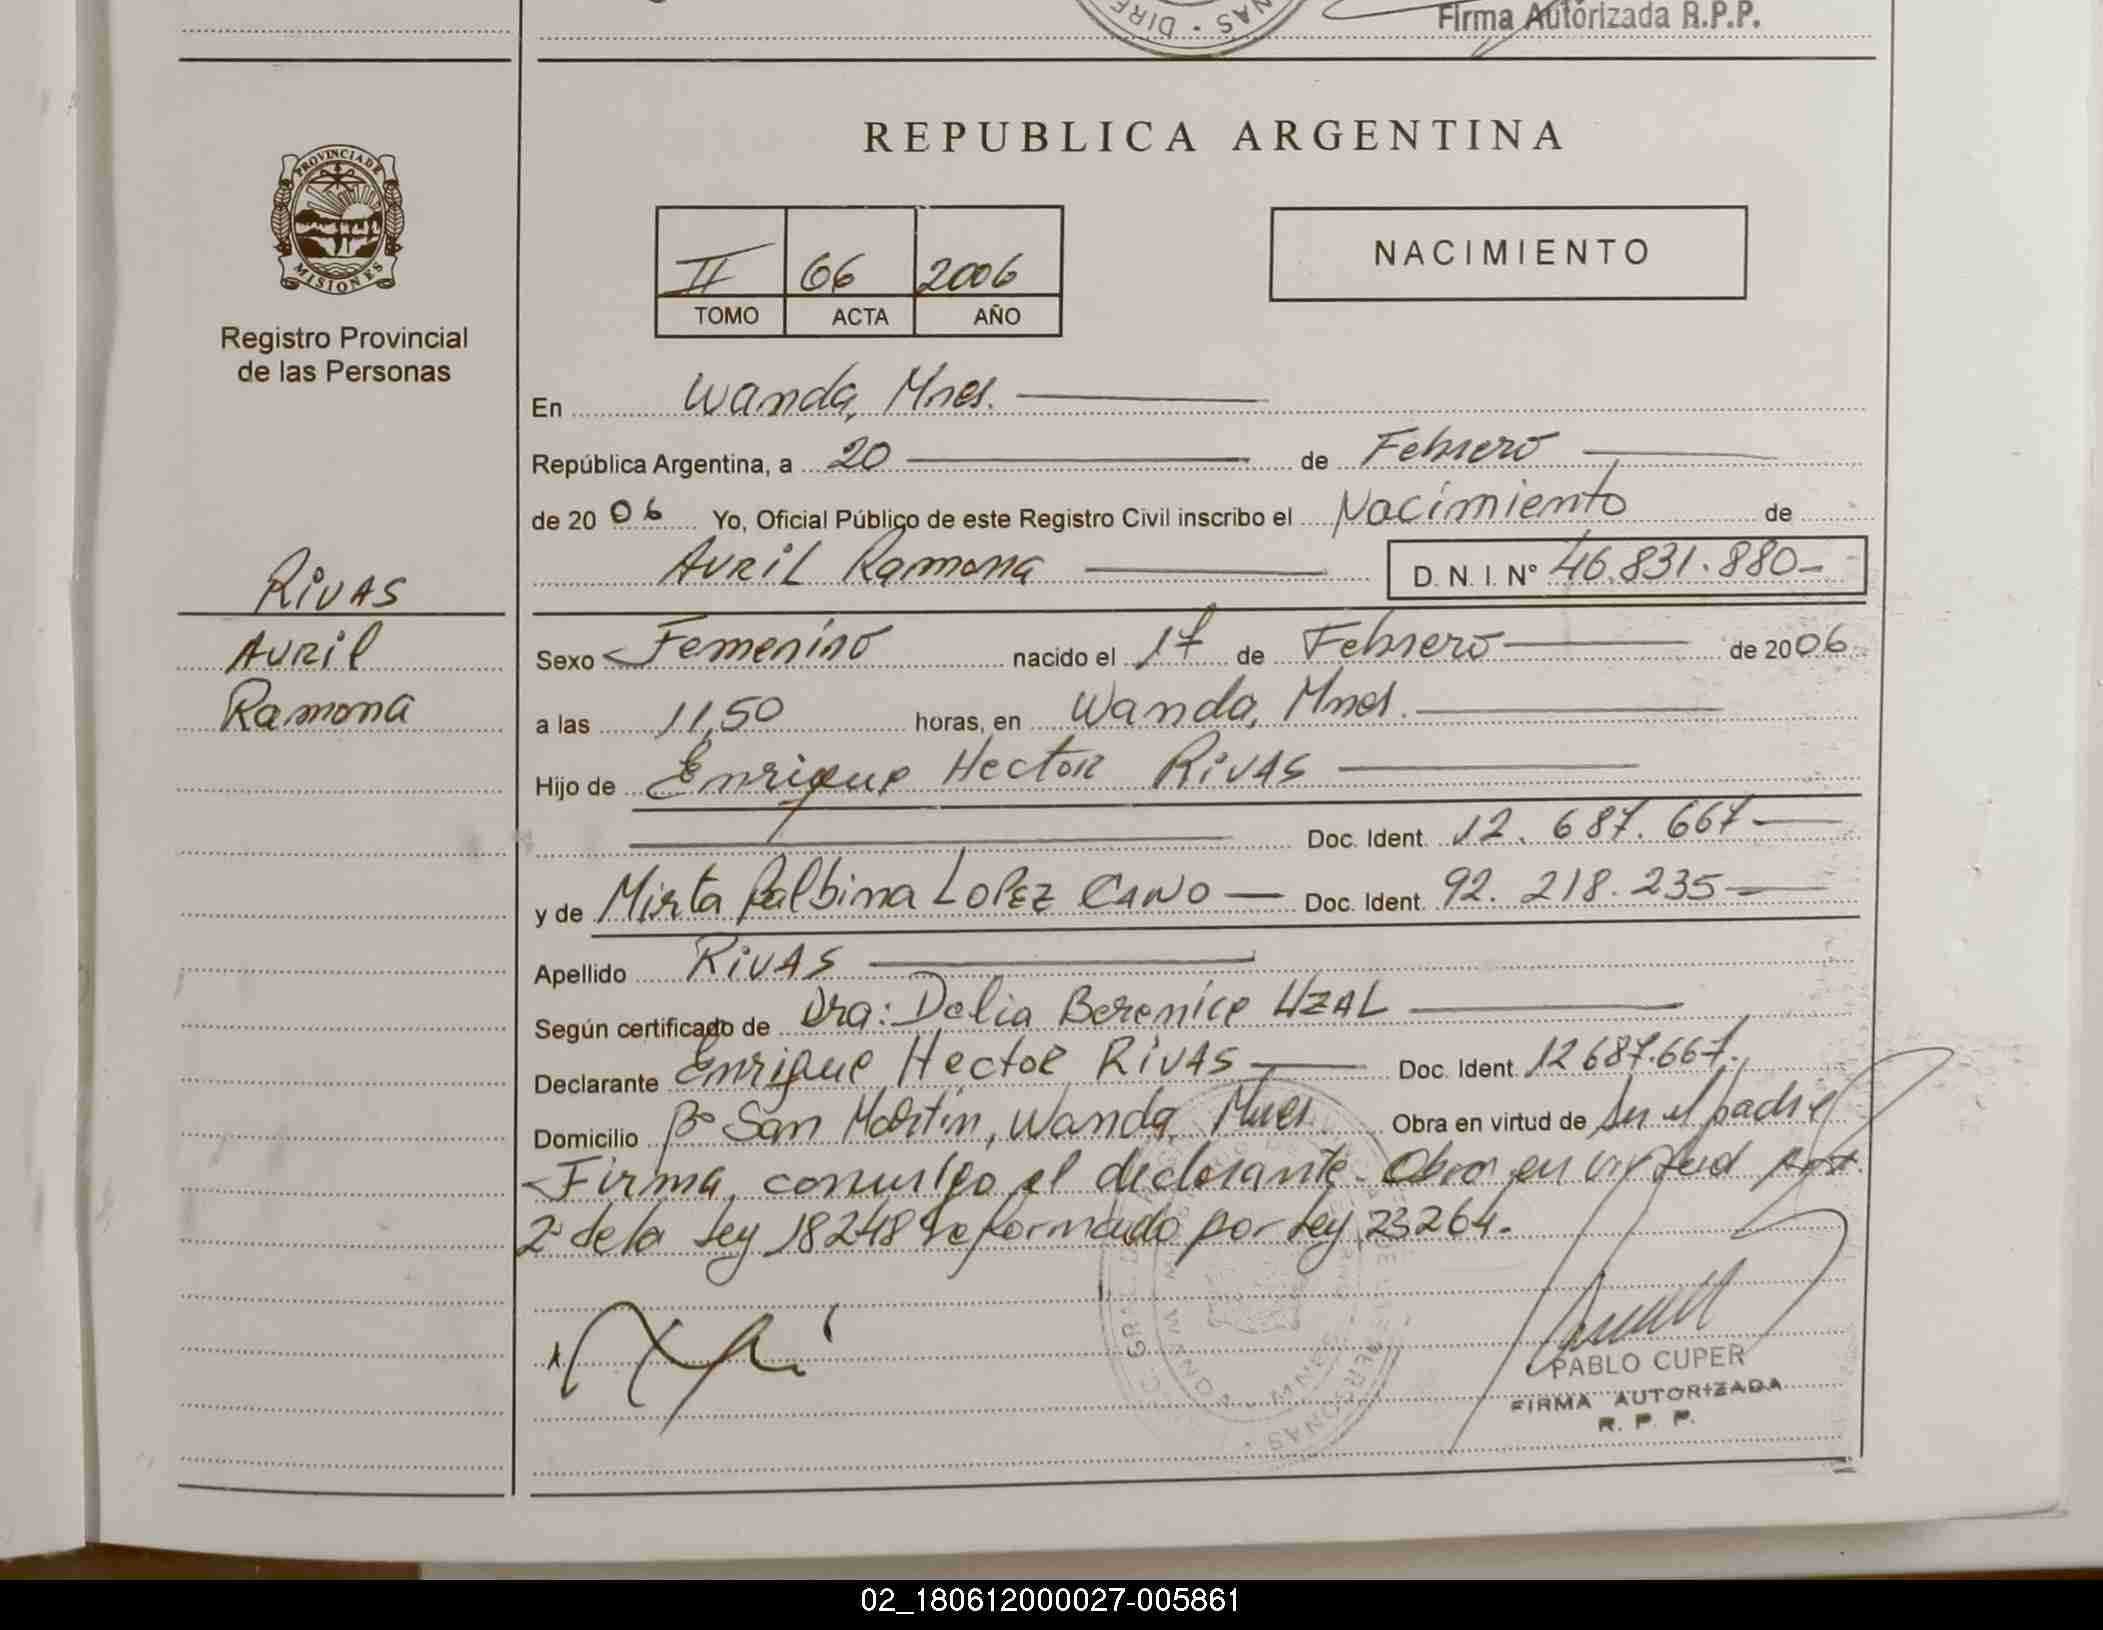 Firma Autorizada R.P.P.
REPUBLICA ARGENTINA
PROVINCIA DE
MISIONES
Registro Provincial
de las Personas
II 66 2006
TOMO ACTA AÑO
NACIMIENTO
En Wanda, Mnes.
República Argentina, a 20 de Febrero
de 2006 Yo, Oficial Público de este Registro Civil inscribo el Nacimiento de
Avril Ramona D. N. I. Nº 46.831.880
RIVAS
Avril
Ramona
Sexo Femenino nacido el 17 de Febrero de 2006
a las 11,50 horas, en Wanda, Mnes.
Hijo de Enrique Hector RIVAS
Doc. Ident. 12.687.667
y de Mirta Balbina LOPEZ CANO Doc. Ident. 92.218.235
Apellido RIVAS
Según certificado de Dra: Delia Berenice UZAL
Declarante Enrique Hector RIVAS Doc. Ident. 12687.667.
Domicilio Bº San Martin, Wanda, Mnes. Obra en virtud de ser el padre
Firma, conmigo el declarante. Obra en virtud
2º de la ley 18248 reformado por ley 23264.
PABLO CUPER
FIRMA AUTORIZADA
R. P. P.
02_180612000027-005861